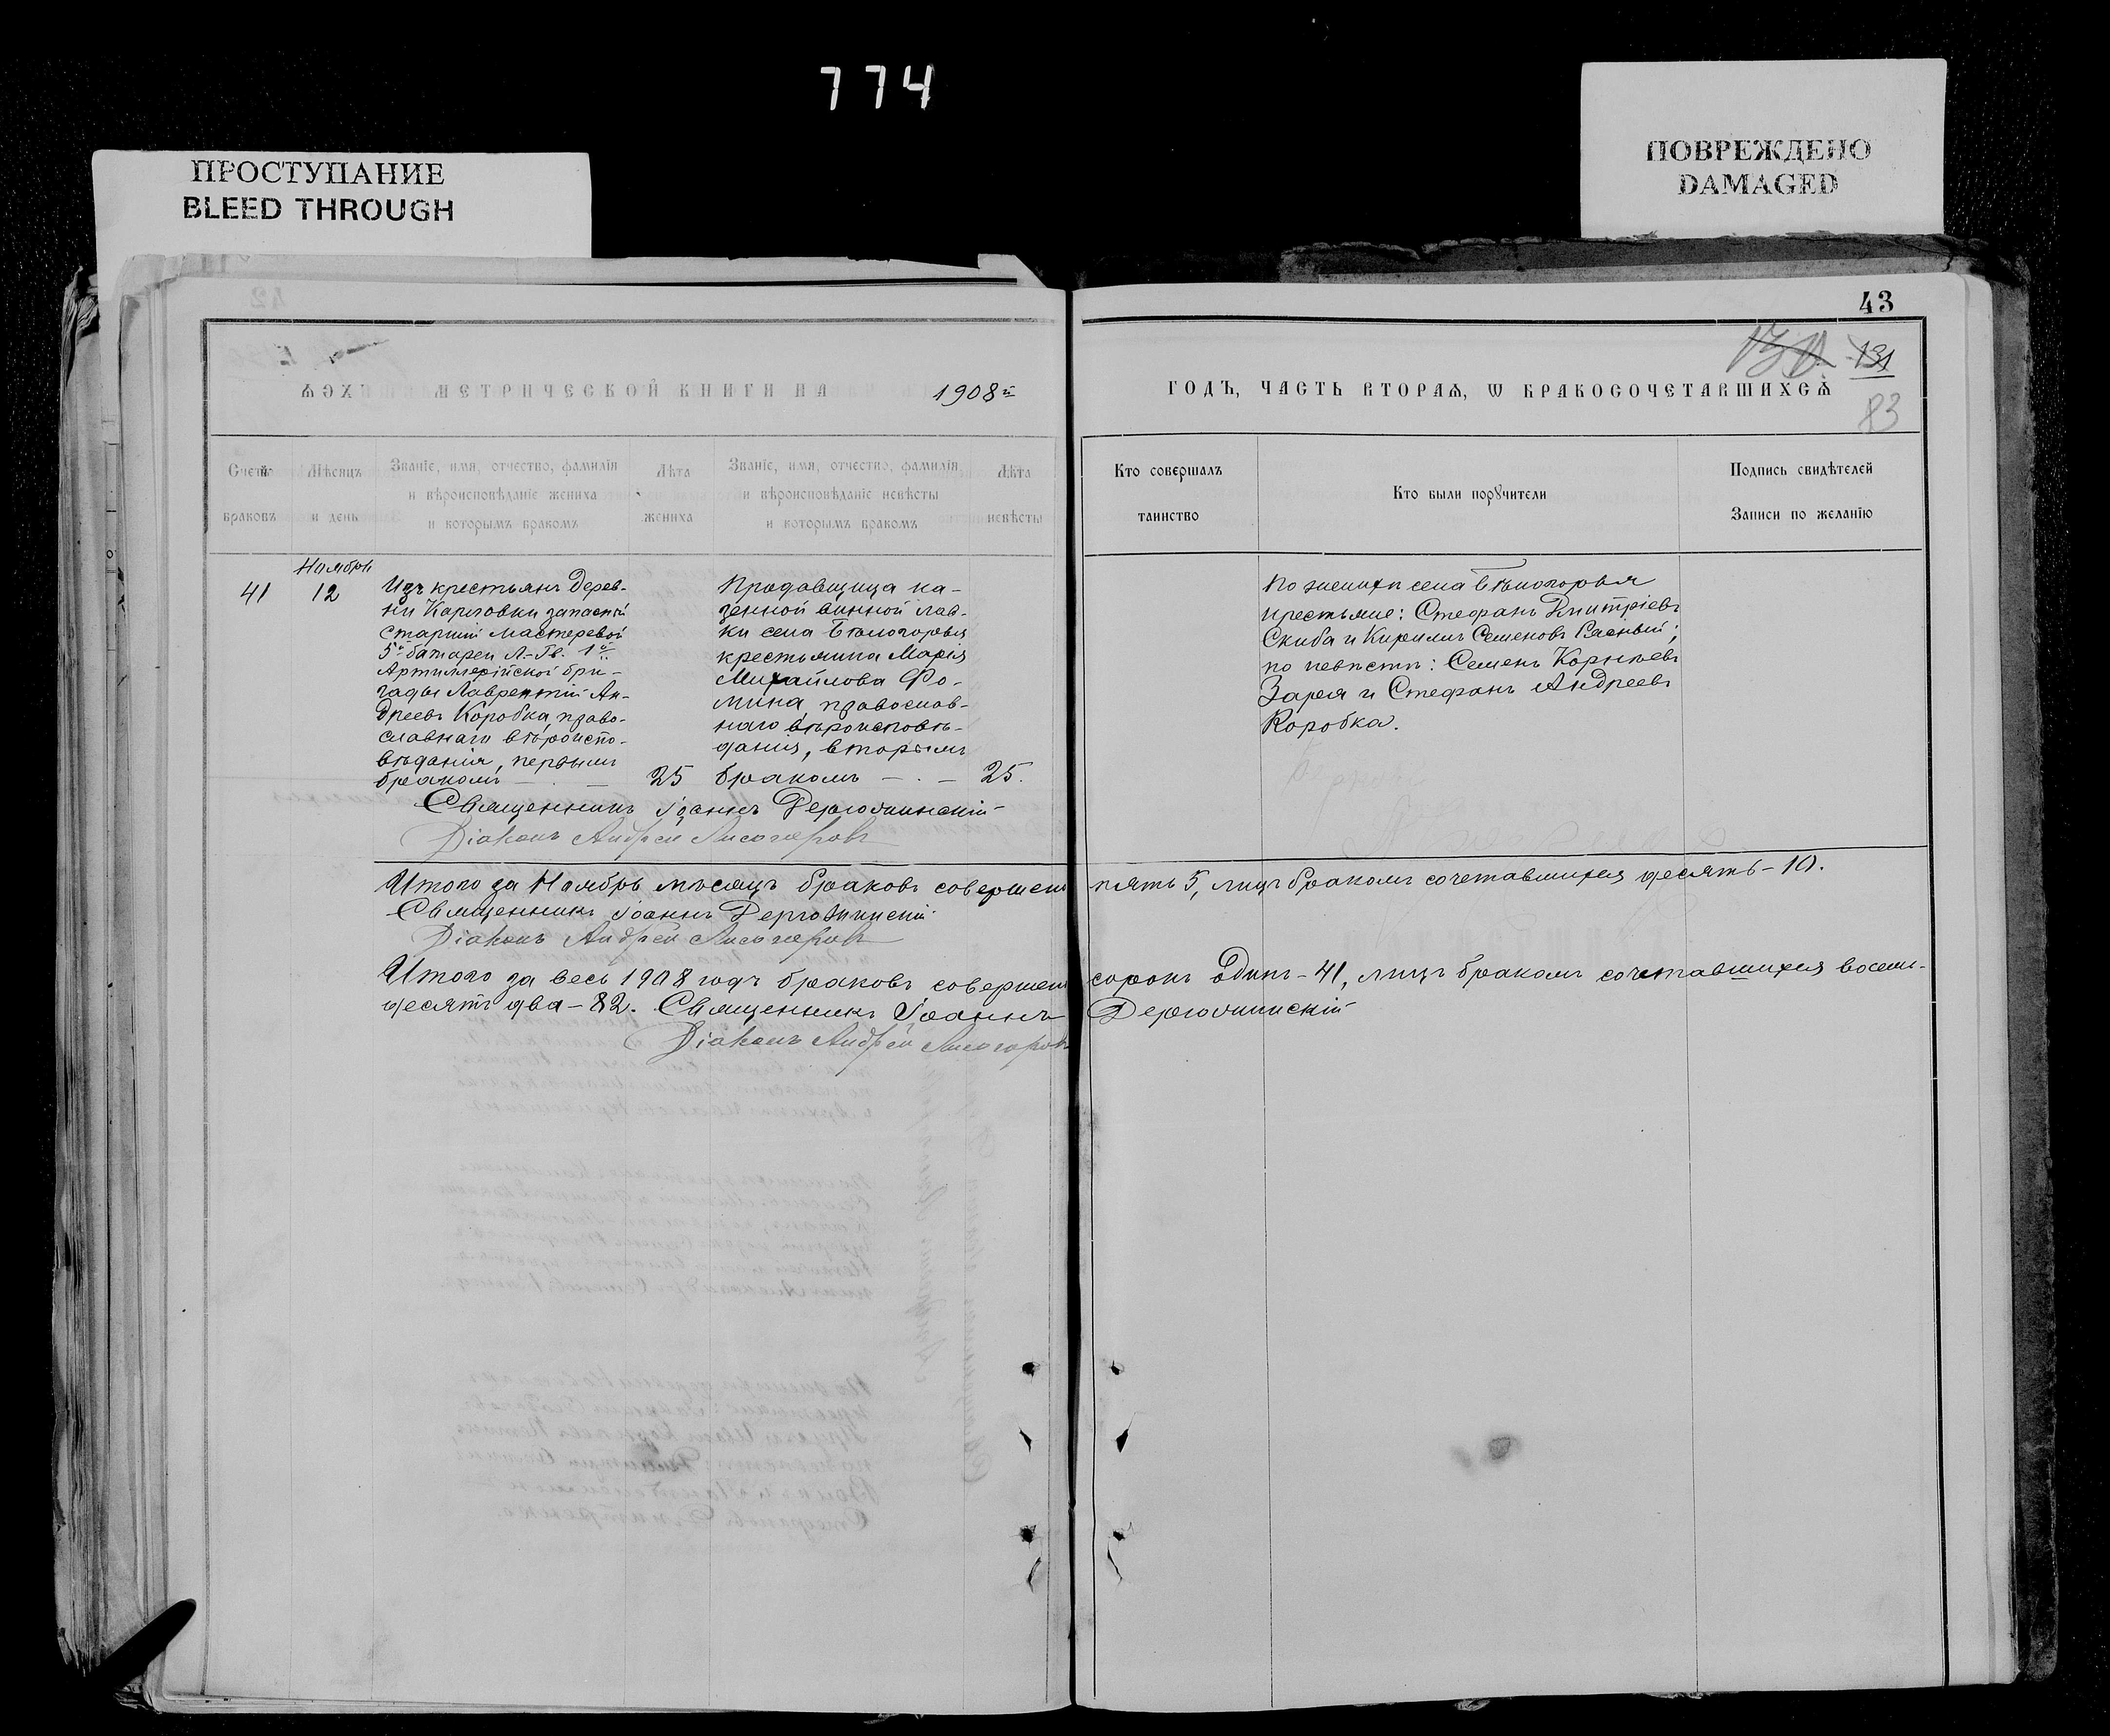 774
ПРОСТУПАНИЕ
BLEED THROUGH
ПОВРЕЖДЕНО
DAMAGED
43
131
83
МЕТРИЧЕСКОЙ КНИГИ НА 1908й
ГОДЪ, ЧАСТЬ ВТОРАѦ, Ѡ БРАКОСОЧЕТАВШИХСѦ
Счетъ
браковъ
Мѣсяцъ
и день
Званіе, имя, отчество, фамилія
и вѣроисповѣданіе жениха
и которымъ бракомъ
Лѣта
жениха
Званіе, имя, отчество, фамилія
и вѣроисповѣданіе невѣсты
и которымъ бракомъ
Лѣта
невѣсты
Кто совершалъ
таинство
Кто были порꙋчители
Подпись свидѣтелей
Записи по желанію
41
Ноябрь
12
Изъ крестьянъ дерев-
ни Карловки запасный
старшій мастеровой
5й батареи Л.-Гв. 1й
Артиллерійской бри-
гады Лаврентій Ан-
дреевъ Коробка, право-
славнаго вѣроиспо-
вѣданія, первымъ
бракомъ
25
Продавщица ка-
зенной винной лав-
ки села Бѣлогорья
крестьянка Марія
Михайлова Фо-
мина, православ-
наго вѣроисповѣ-
данія, вторымъ
бракомъ
25.
По женихѣ села Бѣлогорья
крестьяне: Стефанъ Дмитріевъ
Скиба и Кириллъ Семеновъ Расный;
по невѣстѣ: Семенъ Корнѣевъ
Заря и Стефанъ Андреевъ
Коробка.
Священникъ Іоаннъ
Діаконъ Андрей Лисогоровъ
Итого за Ноябрь мѣсяцъ браковъ совершено пять 5, лицъ бракомъ сочетавшихся десять - 10.
Священникъ Іоаннъ
Діаконъ Андрей Лисогоровъ
Итого за весь 1908 годъ браковъ совершено сорокъ одинъ - 41, лицъ бракомъ сочетавшихся восемь-
десятъ два - 82. Священникъ Іоаннъ
Діаконъ Андрей Лисогоровъ